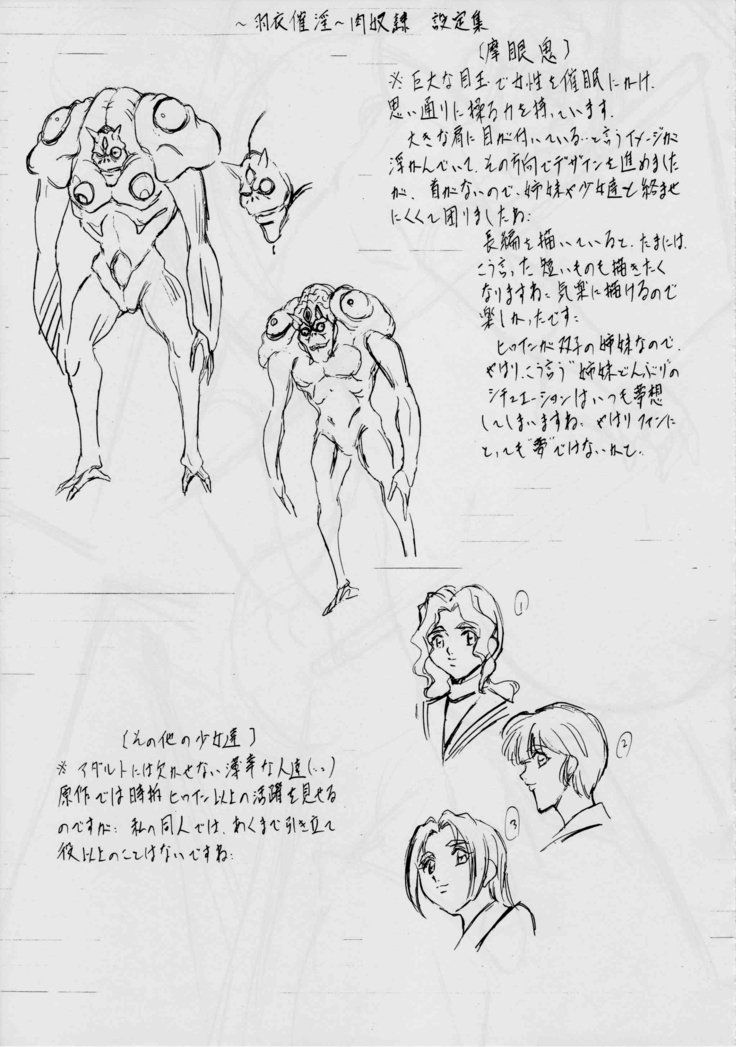 ～羽衣催淫～肉奴隷　設定集
〔摩眼鬼〕
※巨大な目玉で女性を催眠にかけ、
思い通りに操る力を持っています。
大きな肩に目が付いている…と言うイメージが
浮かんでいて、その方向でデザインを進めました
が、首がないので、姉妹や少女達と絡ませ
にくくて困りましたね…
長編を描いていると、たまには、
こう言った短いものも描きたく
なりますね…気楽に描けるので
楽しかったです…
ヒロインが双子の姉妹なので、
やはり、こう言う“姉妹どんぶり”の
シチュエーションはいつも夢想
してしまいますね、やはりファンに
とっても“夢”ではないかと、
①
②
③
〔その他の少女達〕
※アダルトには欠かせない薄幸な人達(…)
原作では時折ヒロイン以上の活躍を見せる
のですが…私の同人では、あくまで引き立て
役以上のことはないですね…